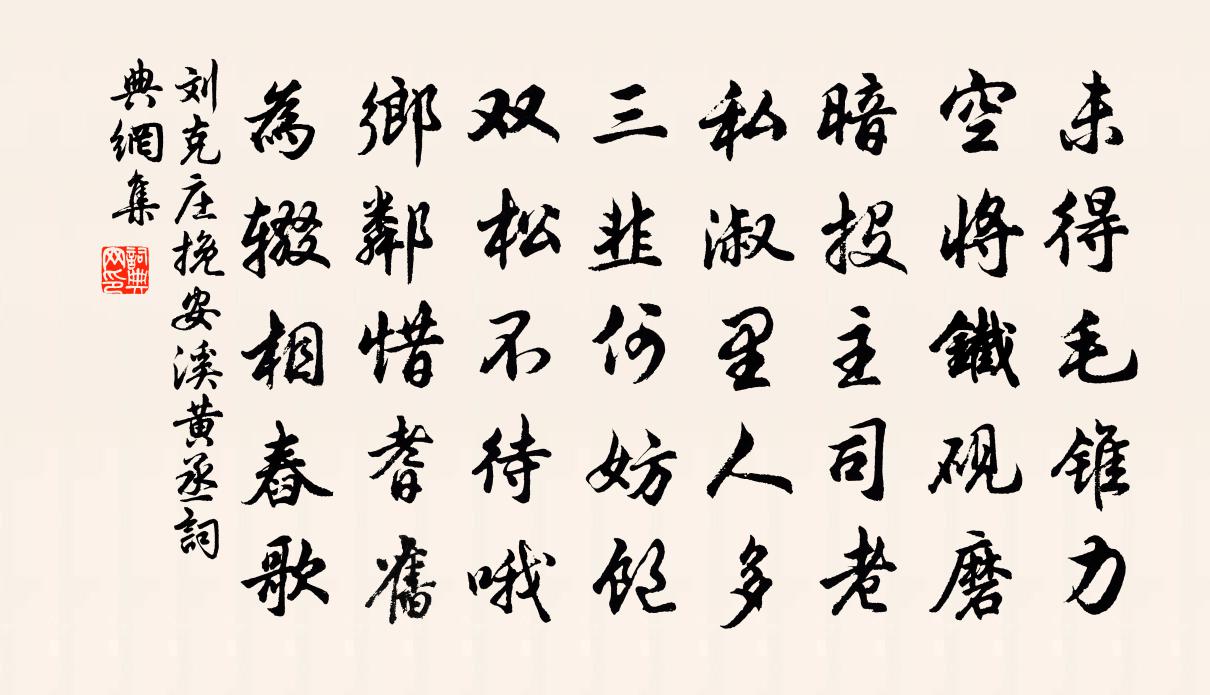 未得毛锥力
空将鐵砚磨
暗投主司老
私淑里人多
三韭何妨饱
双松不待哦
鄉鄰惜耆舊
為辍相舂歌
刘克庄挽安溪黄丞詞
典網集
詞典网印